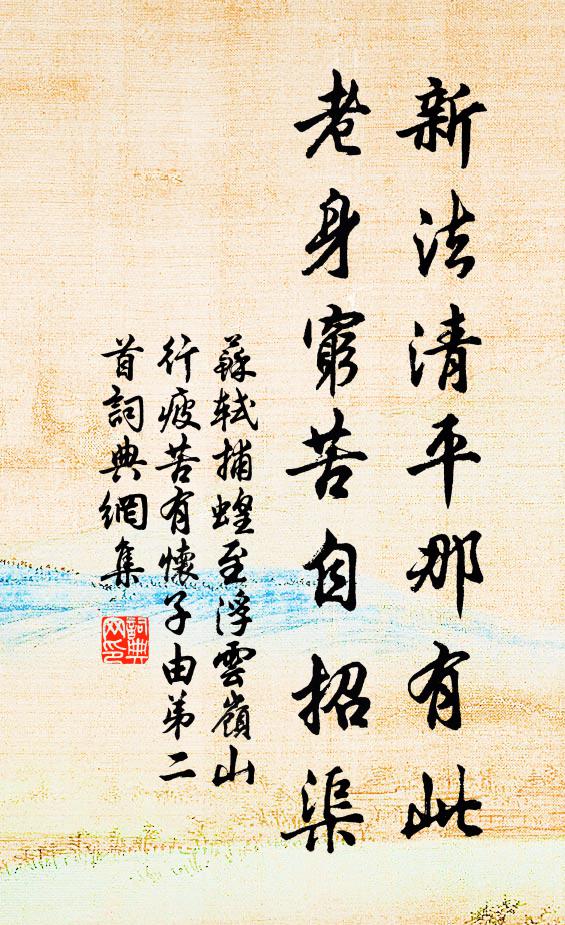 新法清平那有此
老身窮苦自招渠
蘇軾捕蝗至浮雲嶺山
行疲苶有懷子由弟二
首詞典網集
詞典网印